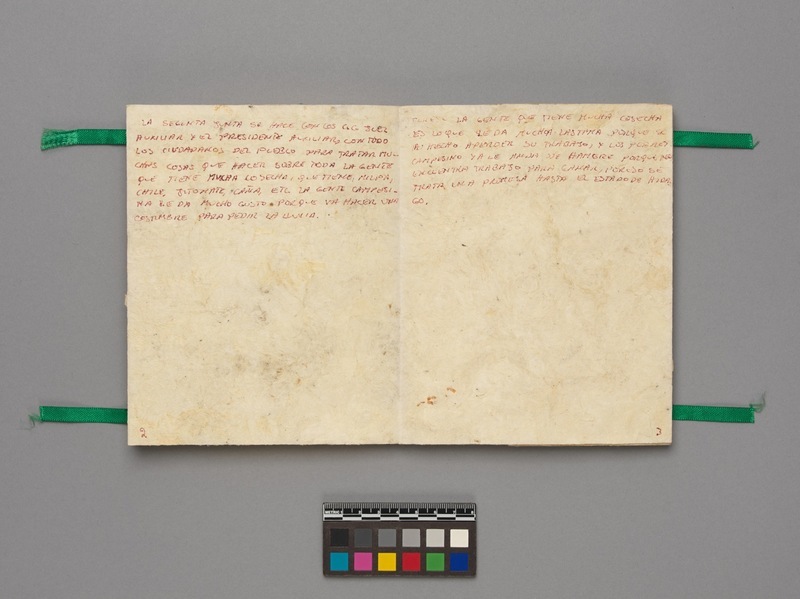 LA SEGENTA JUNTA SE HACE CON LOS C.C. JUEZ
AUXILIAR Y EL PRESIDENTE AUXILIAR, CON TODO
LOS CIUDADANOS DEL PUEBLO PARA TRATAR MU-
CHAS COSAS QUE HACER SOBRE TODA LA GENTE
QUE TIENE MUCHA COSECHA, QUE TIENE, MILPA,
CHILE, JITOMATE, CAÑA, ETC. LA GENTE CAMPESI-
NA LE DA MUCHO GUSTO. PORQUE VA HACER UNA
COSTUMBRE PARA PEDIR LA LLUVIA.
LA GENTE QUE TIENE MUCHA COSECHA
ES LO QUE LE DA MUCHA LASTIMA PORQUE SE
HECHO A PERDER SU TRABAJO, Y LOS POBRES
CAMPESINO YA LE DE HAMBRE PORQUE NO
ENCUENTRA TRABAJO PARA GANAR, PORESO SE
TRATA, UNA PROMESA HASTA EL ESTADO DE HIDAL
GO.
2
3